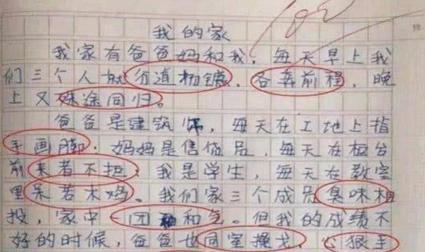 我的家
我家有爸爸妈和我，每天早上我
们三个人就分道扬镳，各奔前程，晚
上又殊途同归。
爸爸是建筑师，每天在工地上指
手画脚；妈妈是售货员，每天在柜台
前来者不拒；我是学生，每天在教室
里呆若木鸡。我们家三个成员臭味相
投，家中一团和气。但我的成绩不
好的时候，爸爸也同室操戈，心狠手